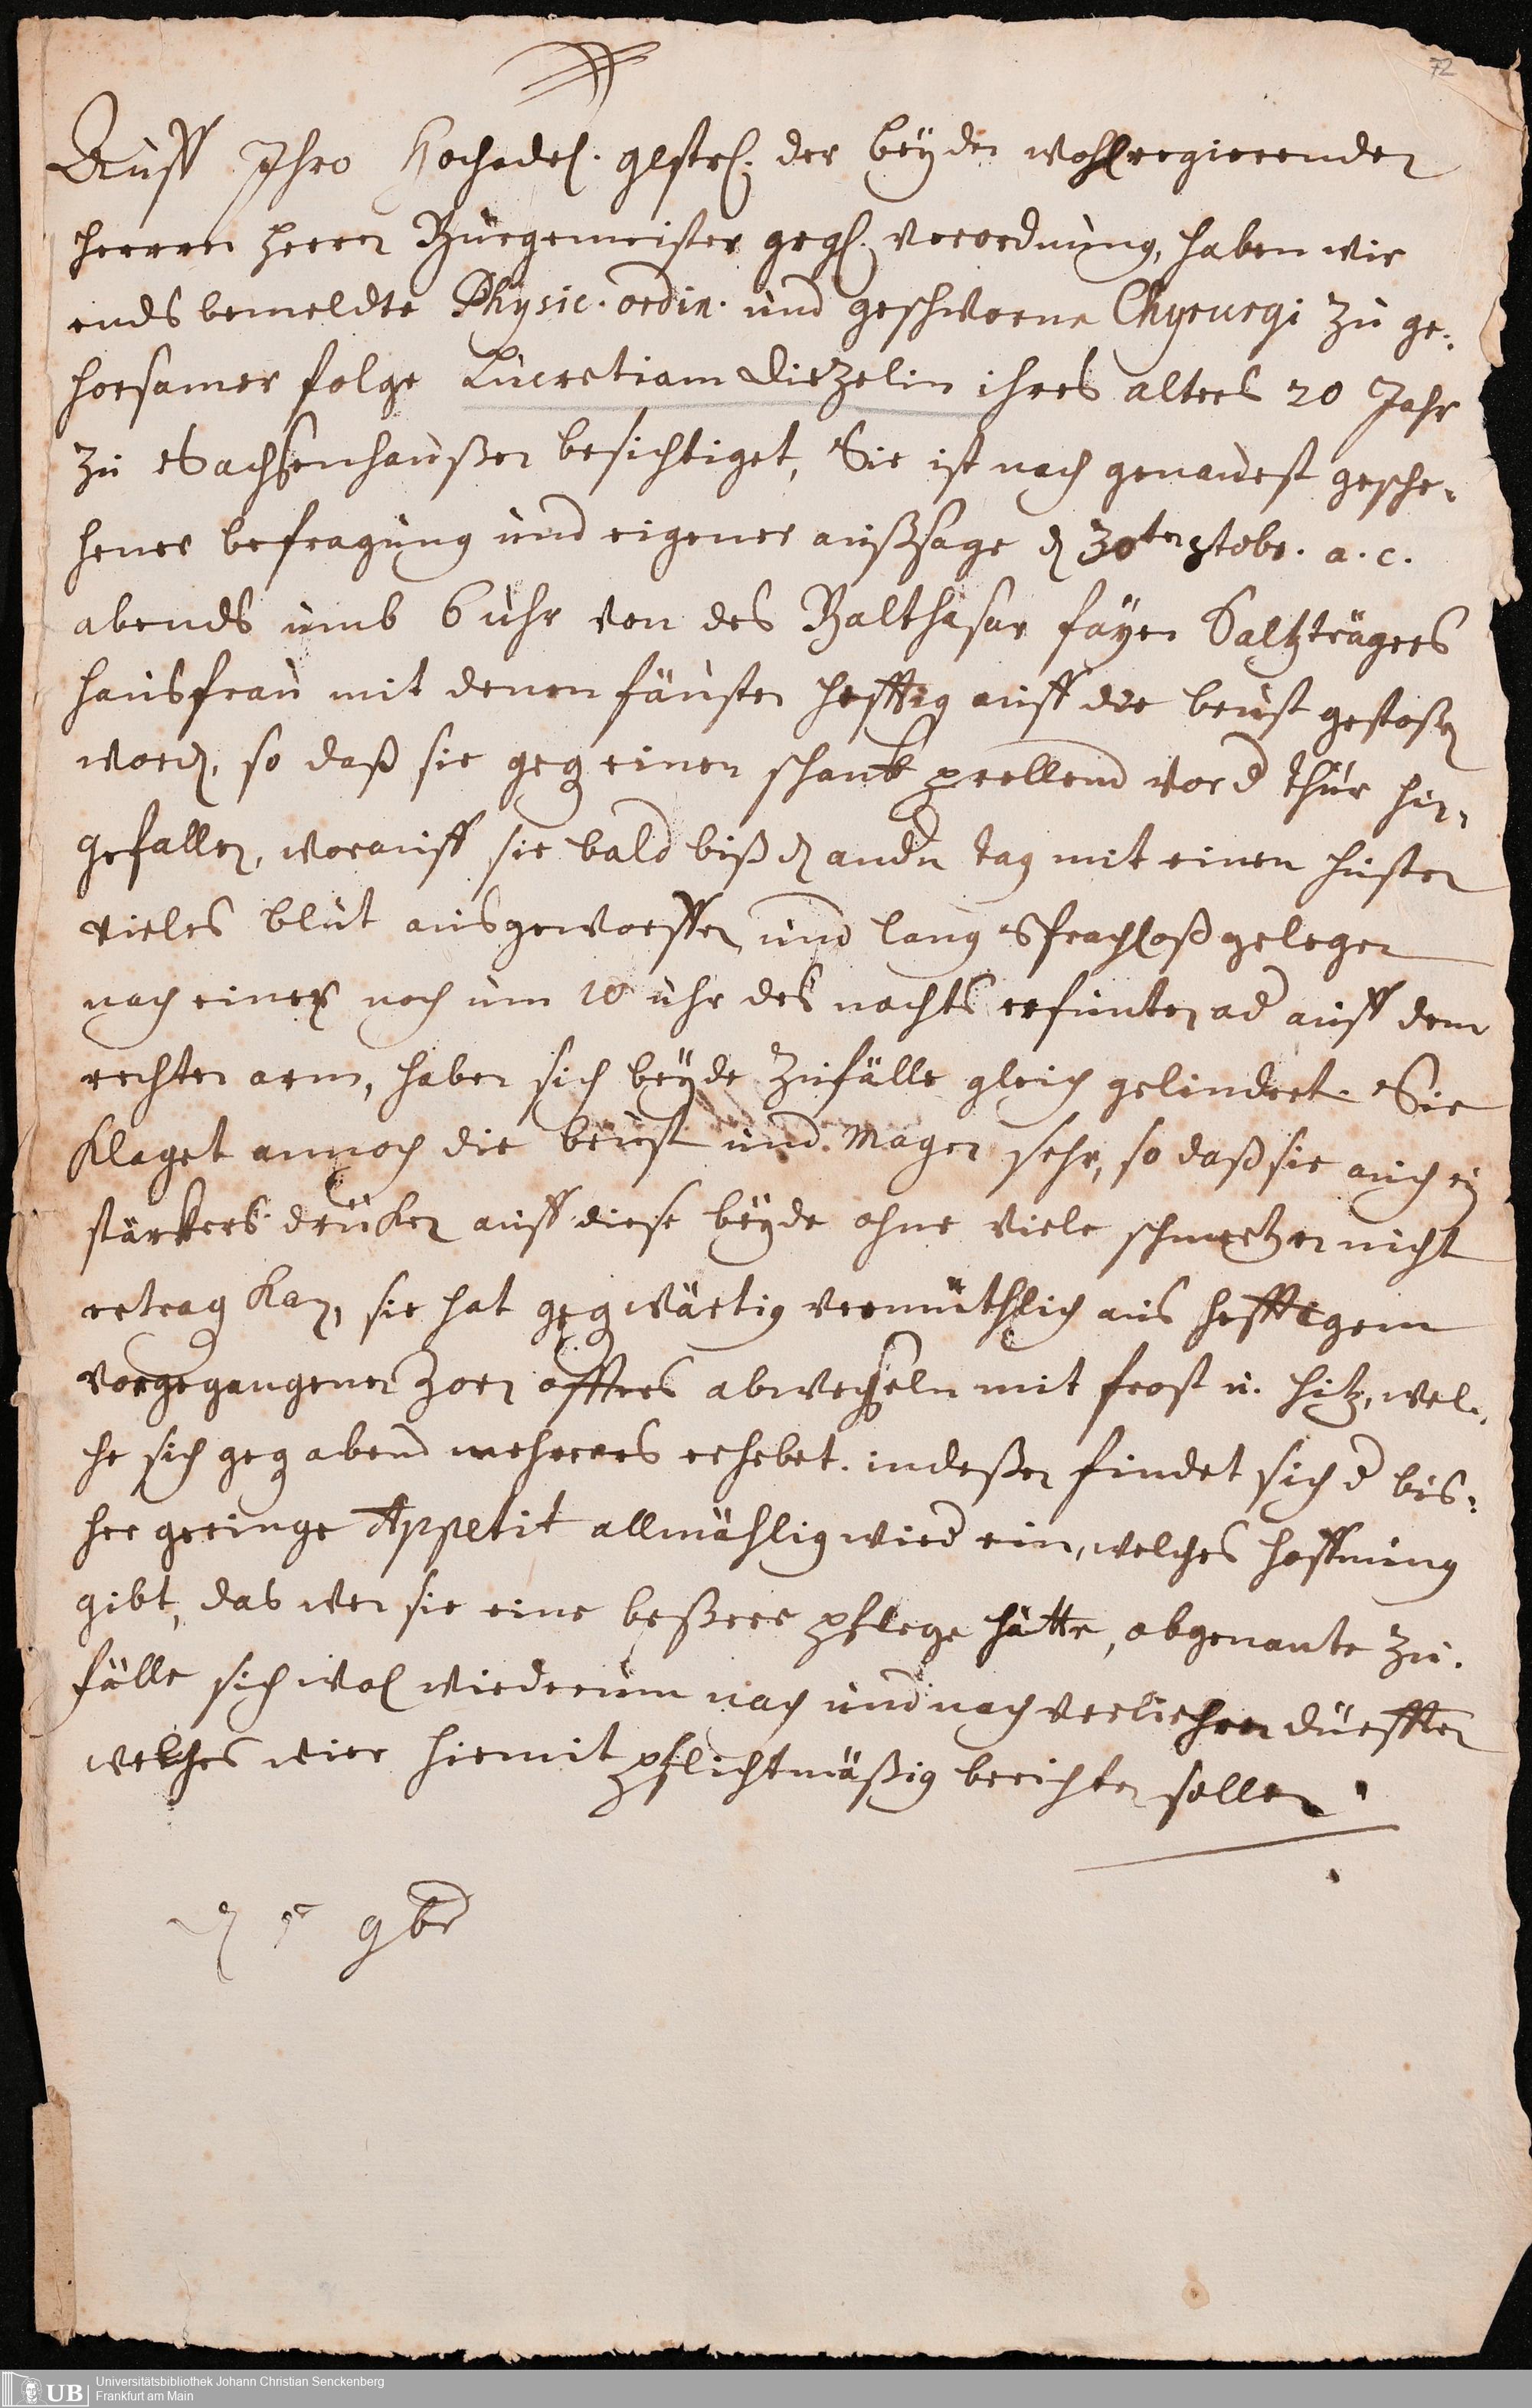 72
Auff Ihro Hochadel. gestrl. der beyden wohlregierenden
Herren Herren Burgemeister gegl. verordnung, haben wir
ends bemeldte Physic. ordin. und geschworne Chyrurgi zu ge:
horsamer folge Lucretiam Diezelin ihres alters 20 Jahr
zu Sachsenhaußen besichtiget, Sie ist nach genauest gesche-
hener befragung und eigener außsage d 30ten 8tobr. a. c.
abends umb 6 uhr von des Balthasar fayen Saltzträgers
hausfrau mit denen fäusten hefftig auff die brust gestoßen
word, so daß sie geg einen schank prellend vor d thür hin-
gefallen, worauff sie bald biß d andn tag mit einen husten
vieles blut ausgeworffen und lang sprachloß gelegen
nach einer noch um 10 uhr des nachts erfunten ad auff dem
rechten arm, haben sich beyde Zufälle gleich gelindert. Sie
klaget annoch die brust und Magen sehr, so daß sie auch ein
stärkers drüken auff diese beyde ohne viele schmertzen nicht
ertrag kan, sie hat gegwärtig vermuthlich aus hefftigem
vorgegangenen Zorn öffters abwechseln mit frost u. hitz, wel-
che sich geg abend mehrers erhebet. indeßen findet sich d bis:
her geringe Appetit allmählig wied ein, welches hoffnung
gibt, das wen sie eine beßere pflege hätte, obgenante Zu-
fälle sich wol wiederum nach und nach verliehren dürfften
welches wier hiemit pflichtmäßig berichten sollen.
d 9br
UB Universitätsbibliothek Johann Christian Senckenberg
Frankfurt am Main